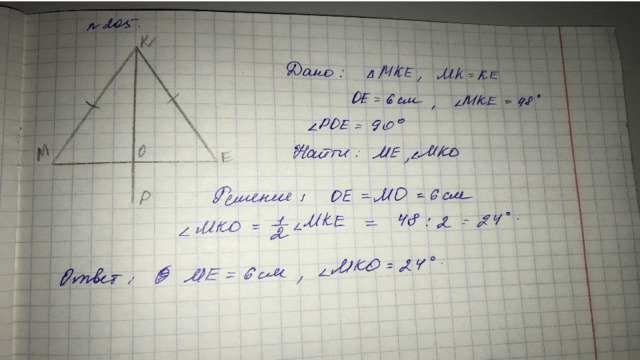 № 205.
K
Дано: △MKE, MK = KE
OE = 6 см, ∠MKE = 48°
∠POE = 90°
M O E
Найти: ME, ∠MKO
P
Решение: OE = MO = 6 см
∠MKO = 1/2 ∠MKE = 48 : 2 = 24°.
Ответ: ME = 6 см, ∠MKO = 24°.